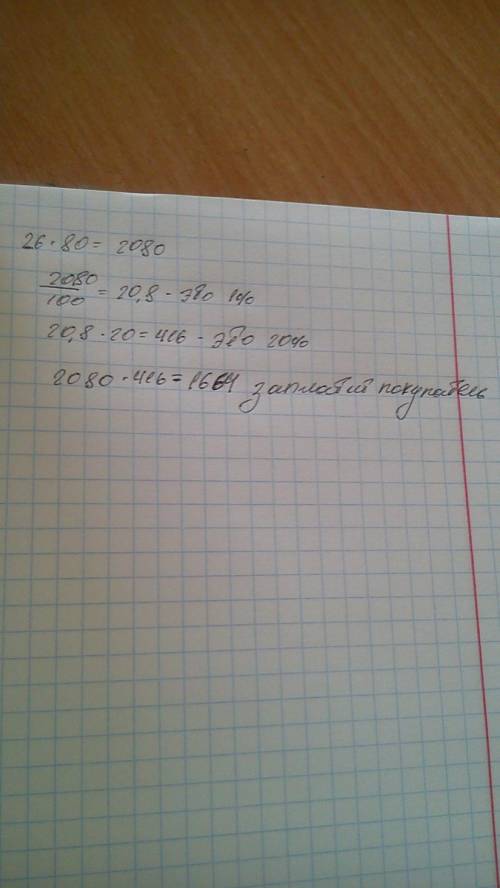 26 · 80 = 2080
2080/100 = 20,8 - это 1%
20,8 · 20 = 416 - это 20%
2080 - 416 = 1664 заплатит покупатель